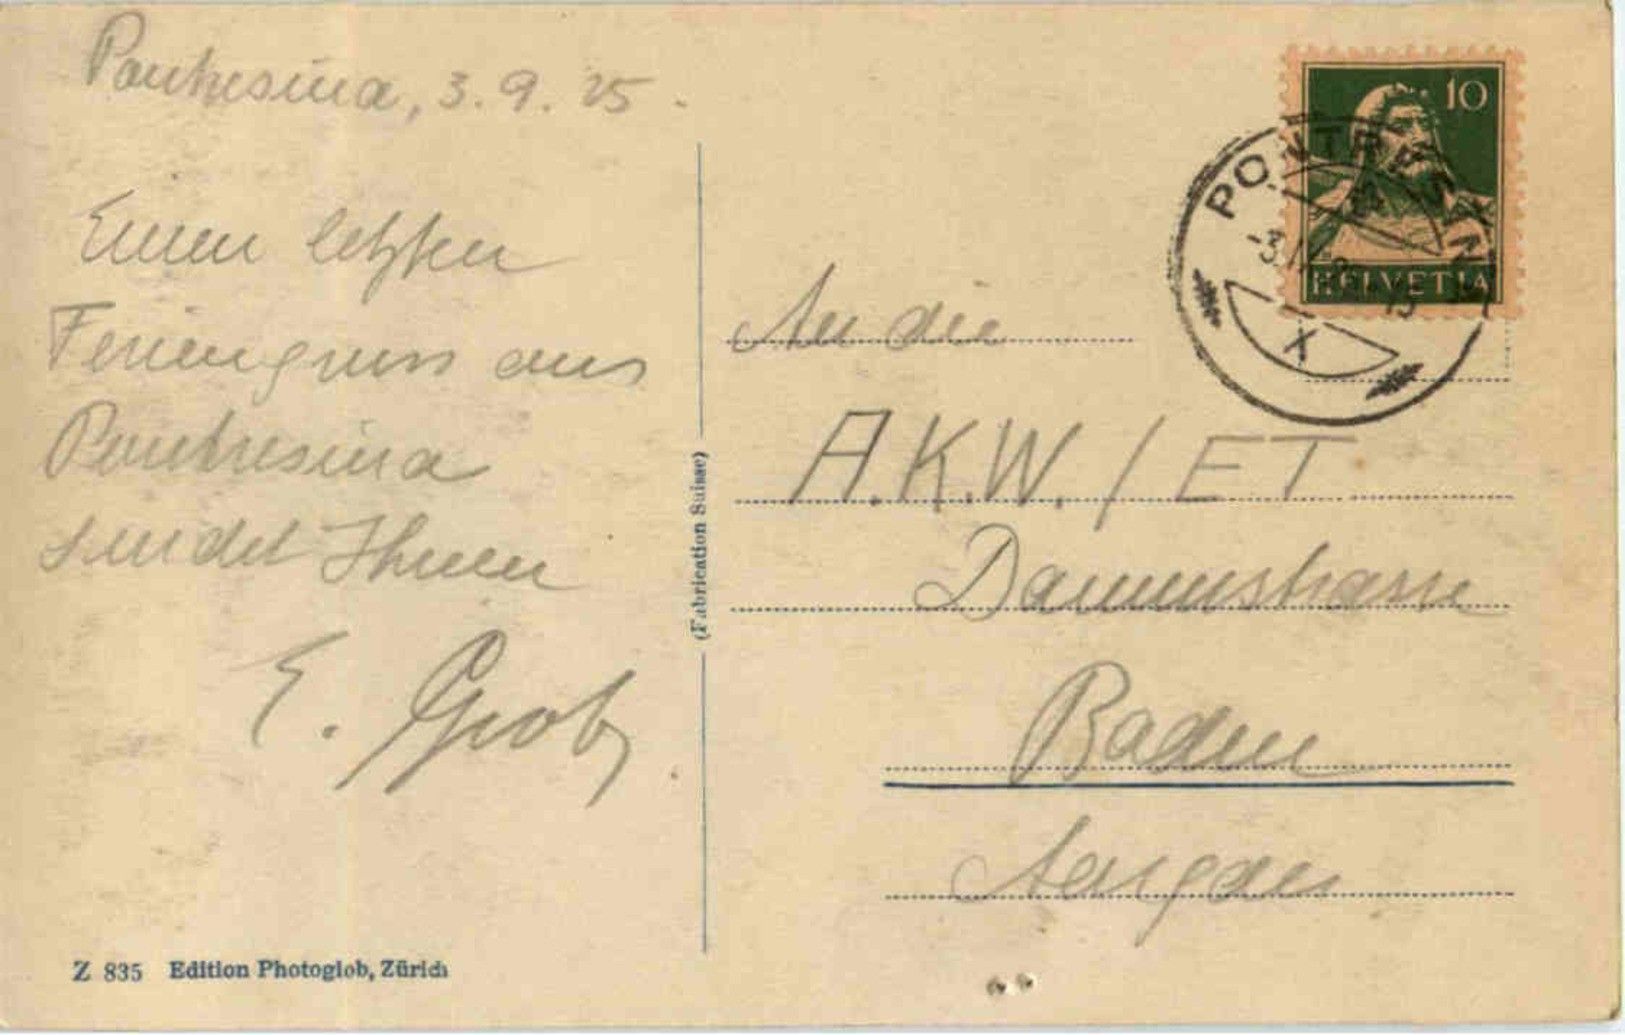 Pontresina, 3. 9. 25.
Einen letzten
Feriengruss aus
Pontresina
sendet Ihnen
E. Grob
Z 835 Edition Photoglob, Zürich
(Fabrication Suisse)
10
HELVETIA
PONTRESINA
-3.IX.
X
An die
A.K.W. / ET
Dammstrasse
Baden
Aargau